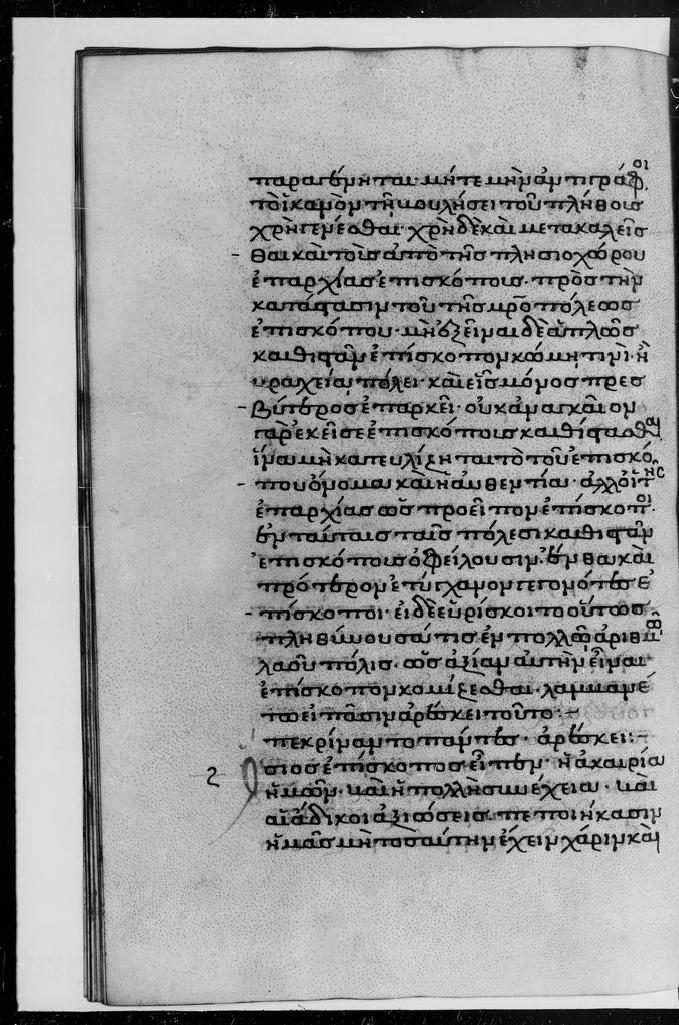 παραγένηται· μήτε μὴν ἀντιγράφοι
τὸ ἱκανὸν τῇ βουλήσει τοῦ πλήθους
χρὴ γενέσθαι· χρὴ δὲ καὶ μετακαλεῖσ
θαι καὶ τοὺς ἀπὸ τῆς πλησιοχώρου
ἐπαρχίας ἐπισκόπους· πρὸς τὴν
κατάστασιν τοῦ τῆς μρ̅οπόλεως
ἐπισκόπου· μὴ ἐξεῖναι δὲ ἁπλῶς
καθιστᾶν ἐπίσκοπον κώμη τινὶ· ἢ
βραχεία πόλει· καὶ εἷς μόνος πρεσ
βύτερος ἐπαρκεῖ· οὐκ ἀναγκαῖον
γὰρ ἐκεῖσε ἐπισκόπους καθίστασθαι
ἵνα μὴ κατευτελίζηται τὸ τοῦ ἐπισκό
που ὄνομα καὶ ἡ αὐθεντία· ἀλλ' οἱ τῆς
ἐπαρχίας ὡς προεῖπον ἐπίσκοποι
ἐν ταύταις ταῖς πόλεσι καθιστᾶν
ἐπισκόπους ὀφείλουσιν· ἔνθα καὶ
πρότερον ἐτύγχανον γεγονότες ἐ
πίσκοποι· εἰ δὲ εὑρίσκοιτο οὕτως
πληθύνουσά τις ἐν πολλῶ ἀριθμῶ
λαοῦ πόλις· ὡς ἀξίαν αὐτὴν εἶναι
ἐπίσκοπον κομίζεσθαι· λαμβανέ
τω εἰ πᾶσιν ἀρέσκει τοῦτο:–
πεκρίναντο πάντες· ἀρέσκει:–
σιος ἐπίσκοπος εἶπεν· ἡ ἀκαιρία
ἡμῶν· καὶ ἡ πολλὴ συνέχεια· καὶ
αἱ ἄδικοι ἀξιώσεις· πεποιήκασιν
ἡμᾶς μὴ τοσαύτην ἔχειν χάριν καὶ